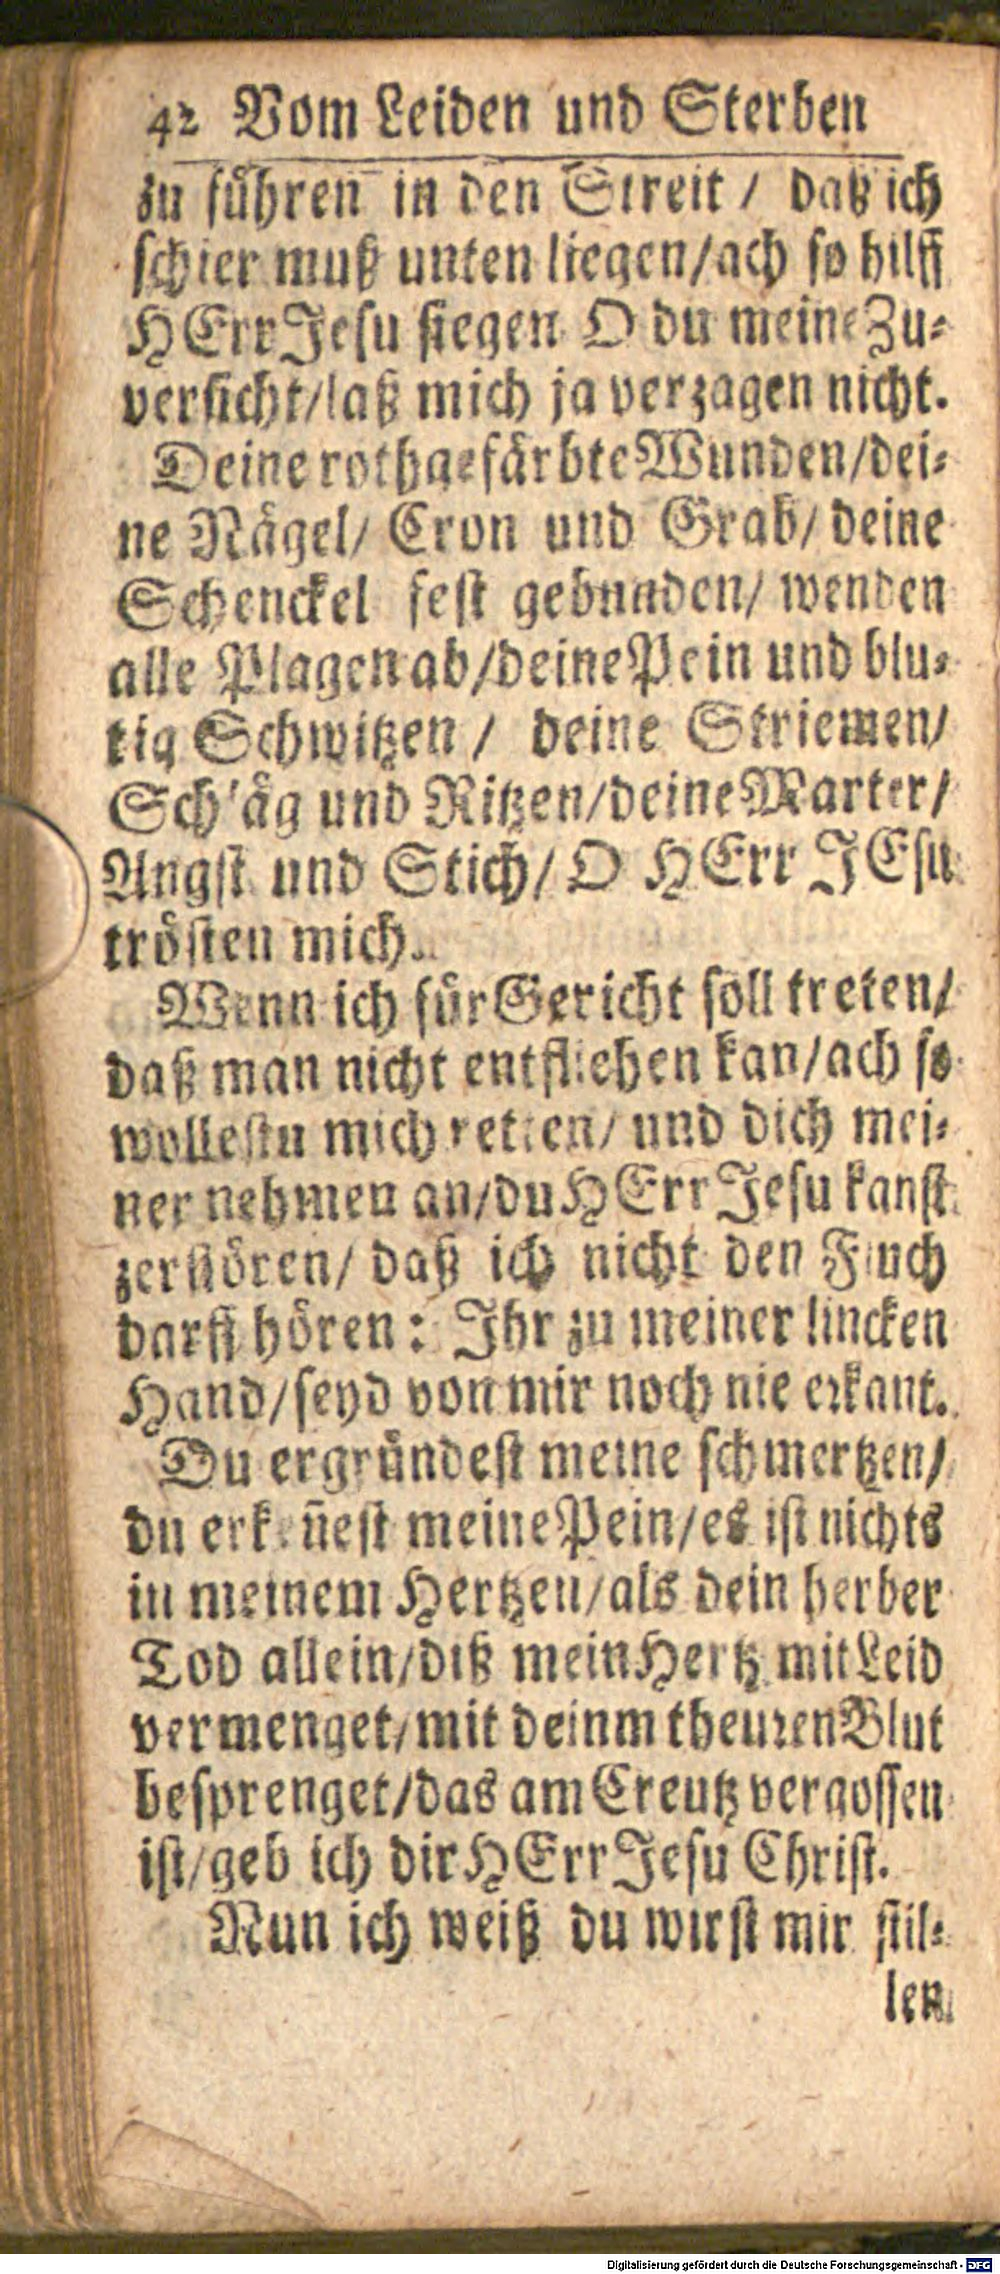 42 Vom Leiden und Sterben
zu führen in den Streit / daß ich
schier muß unten liegen/ach so hilff
HErr Jesu siegen O du meine Zu-
versicht/laß mich ja verzagen nicht.
Deine rothgefärbte Wunden/dei-
ne Nägel/ Cron und Grab/ deine
Schenckel fest gebunden/ wenden
alle Plagen ab/deine Pein und blu-
tig Schwitzen / deine Striemen/
Schläg und Ritzen/deine Marter/
Angst und Stich/ O HErr JEsu
trösten mich.
Wenn ich für Gericht soll treten/
daß man nicht entfliehen kan/ach so
wollestu mich retten/ und dich mei-
ner nehmen an/du HErr Jesu kanst
zerstören/ daß ich nicht den Fluch
darff hören: Ihr zu meiner lincken
Hand/seyd von mir noch nie erkant.
Du ergründest meine schmertzen/
du erkeñest meine Pein/es ist nichts
in meinem Hertzen/als dein herber
Tod allein/diß mein Hertz mit Leid
vermenget/mit deinm theuren Blut
besprenget/das am Creutz vergossen
ist/geb ich dir HErr Jesu Christ.
Nun ich weiß du wirst mir stil-
len
Digitalisierung gefördert durch die Deutsche Forschungsgemeinschaft - DFG